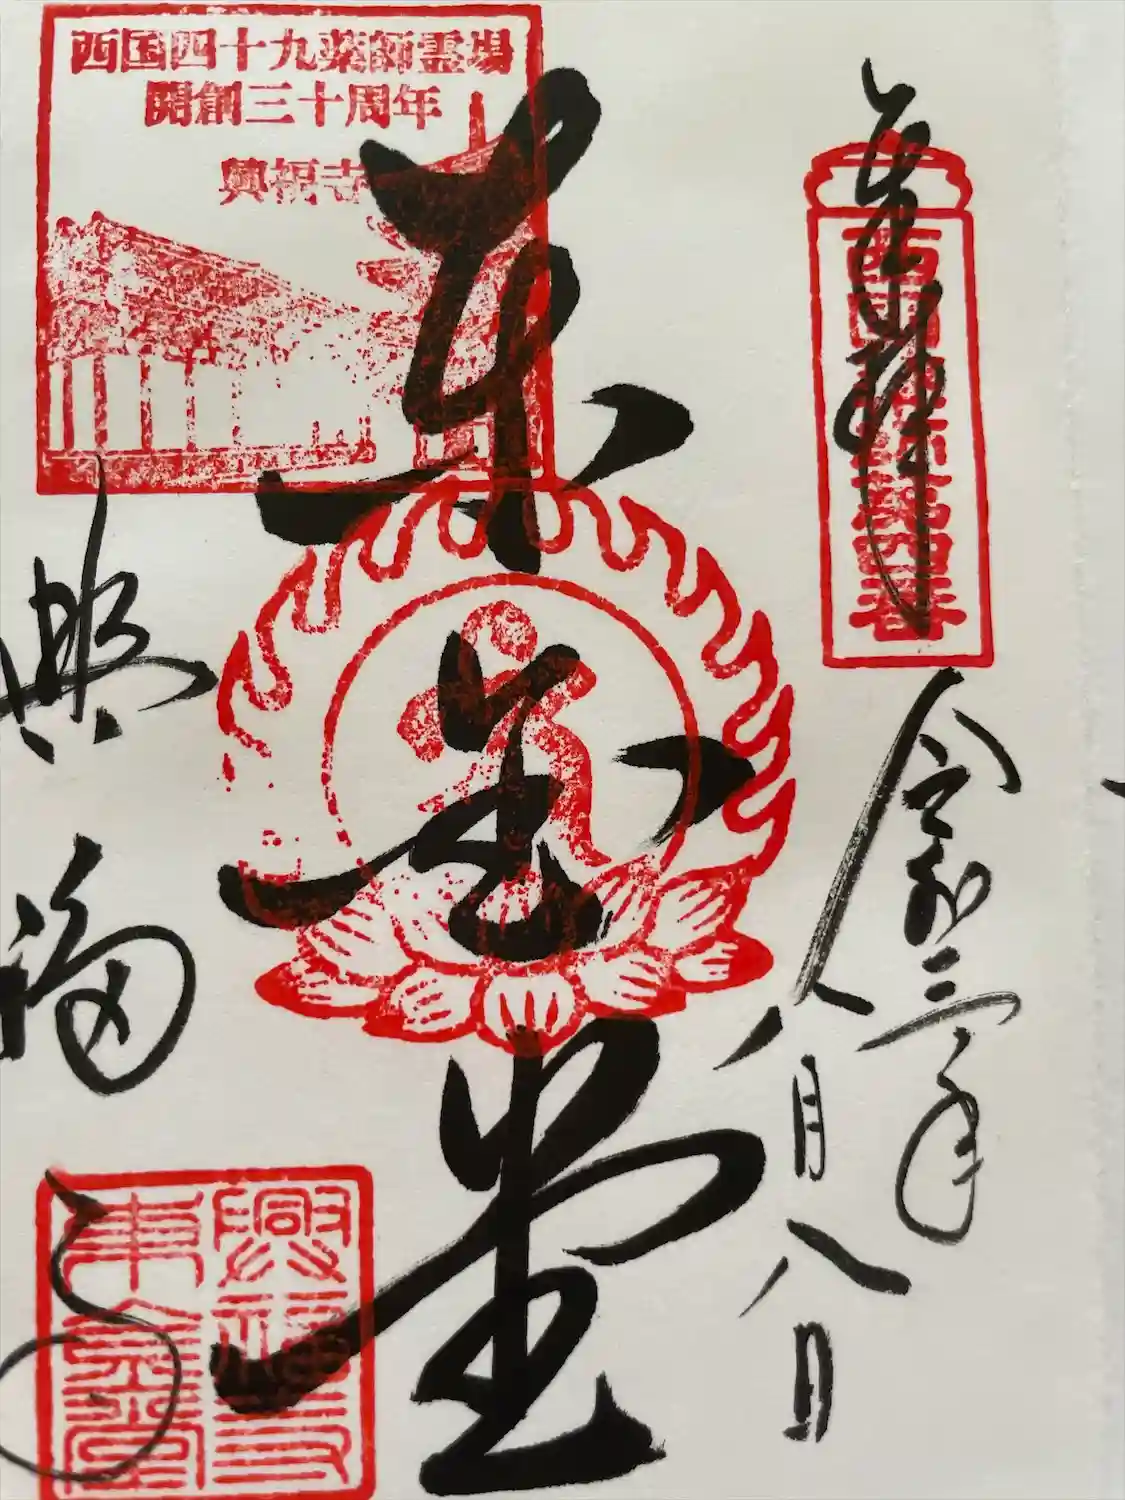 奉拝
西国薬師第四番
令和三年
八月八日
東金堂
西国四十九薬師霊場
開創三十周年
興福寺
興福寺
興福寺
東金堂